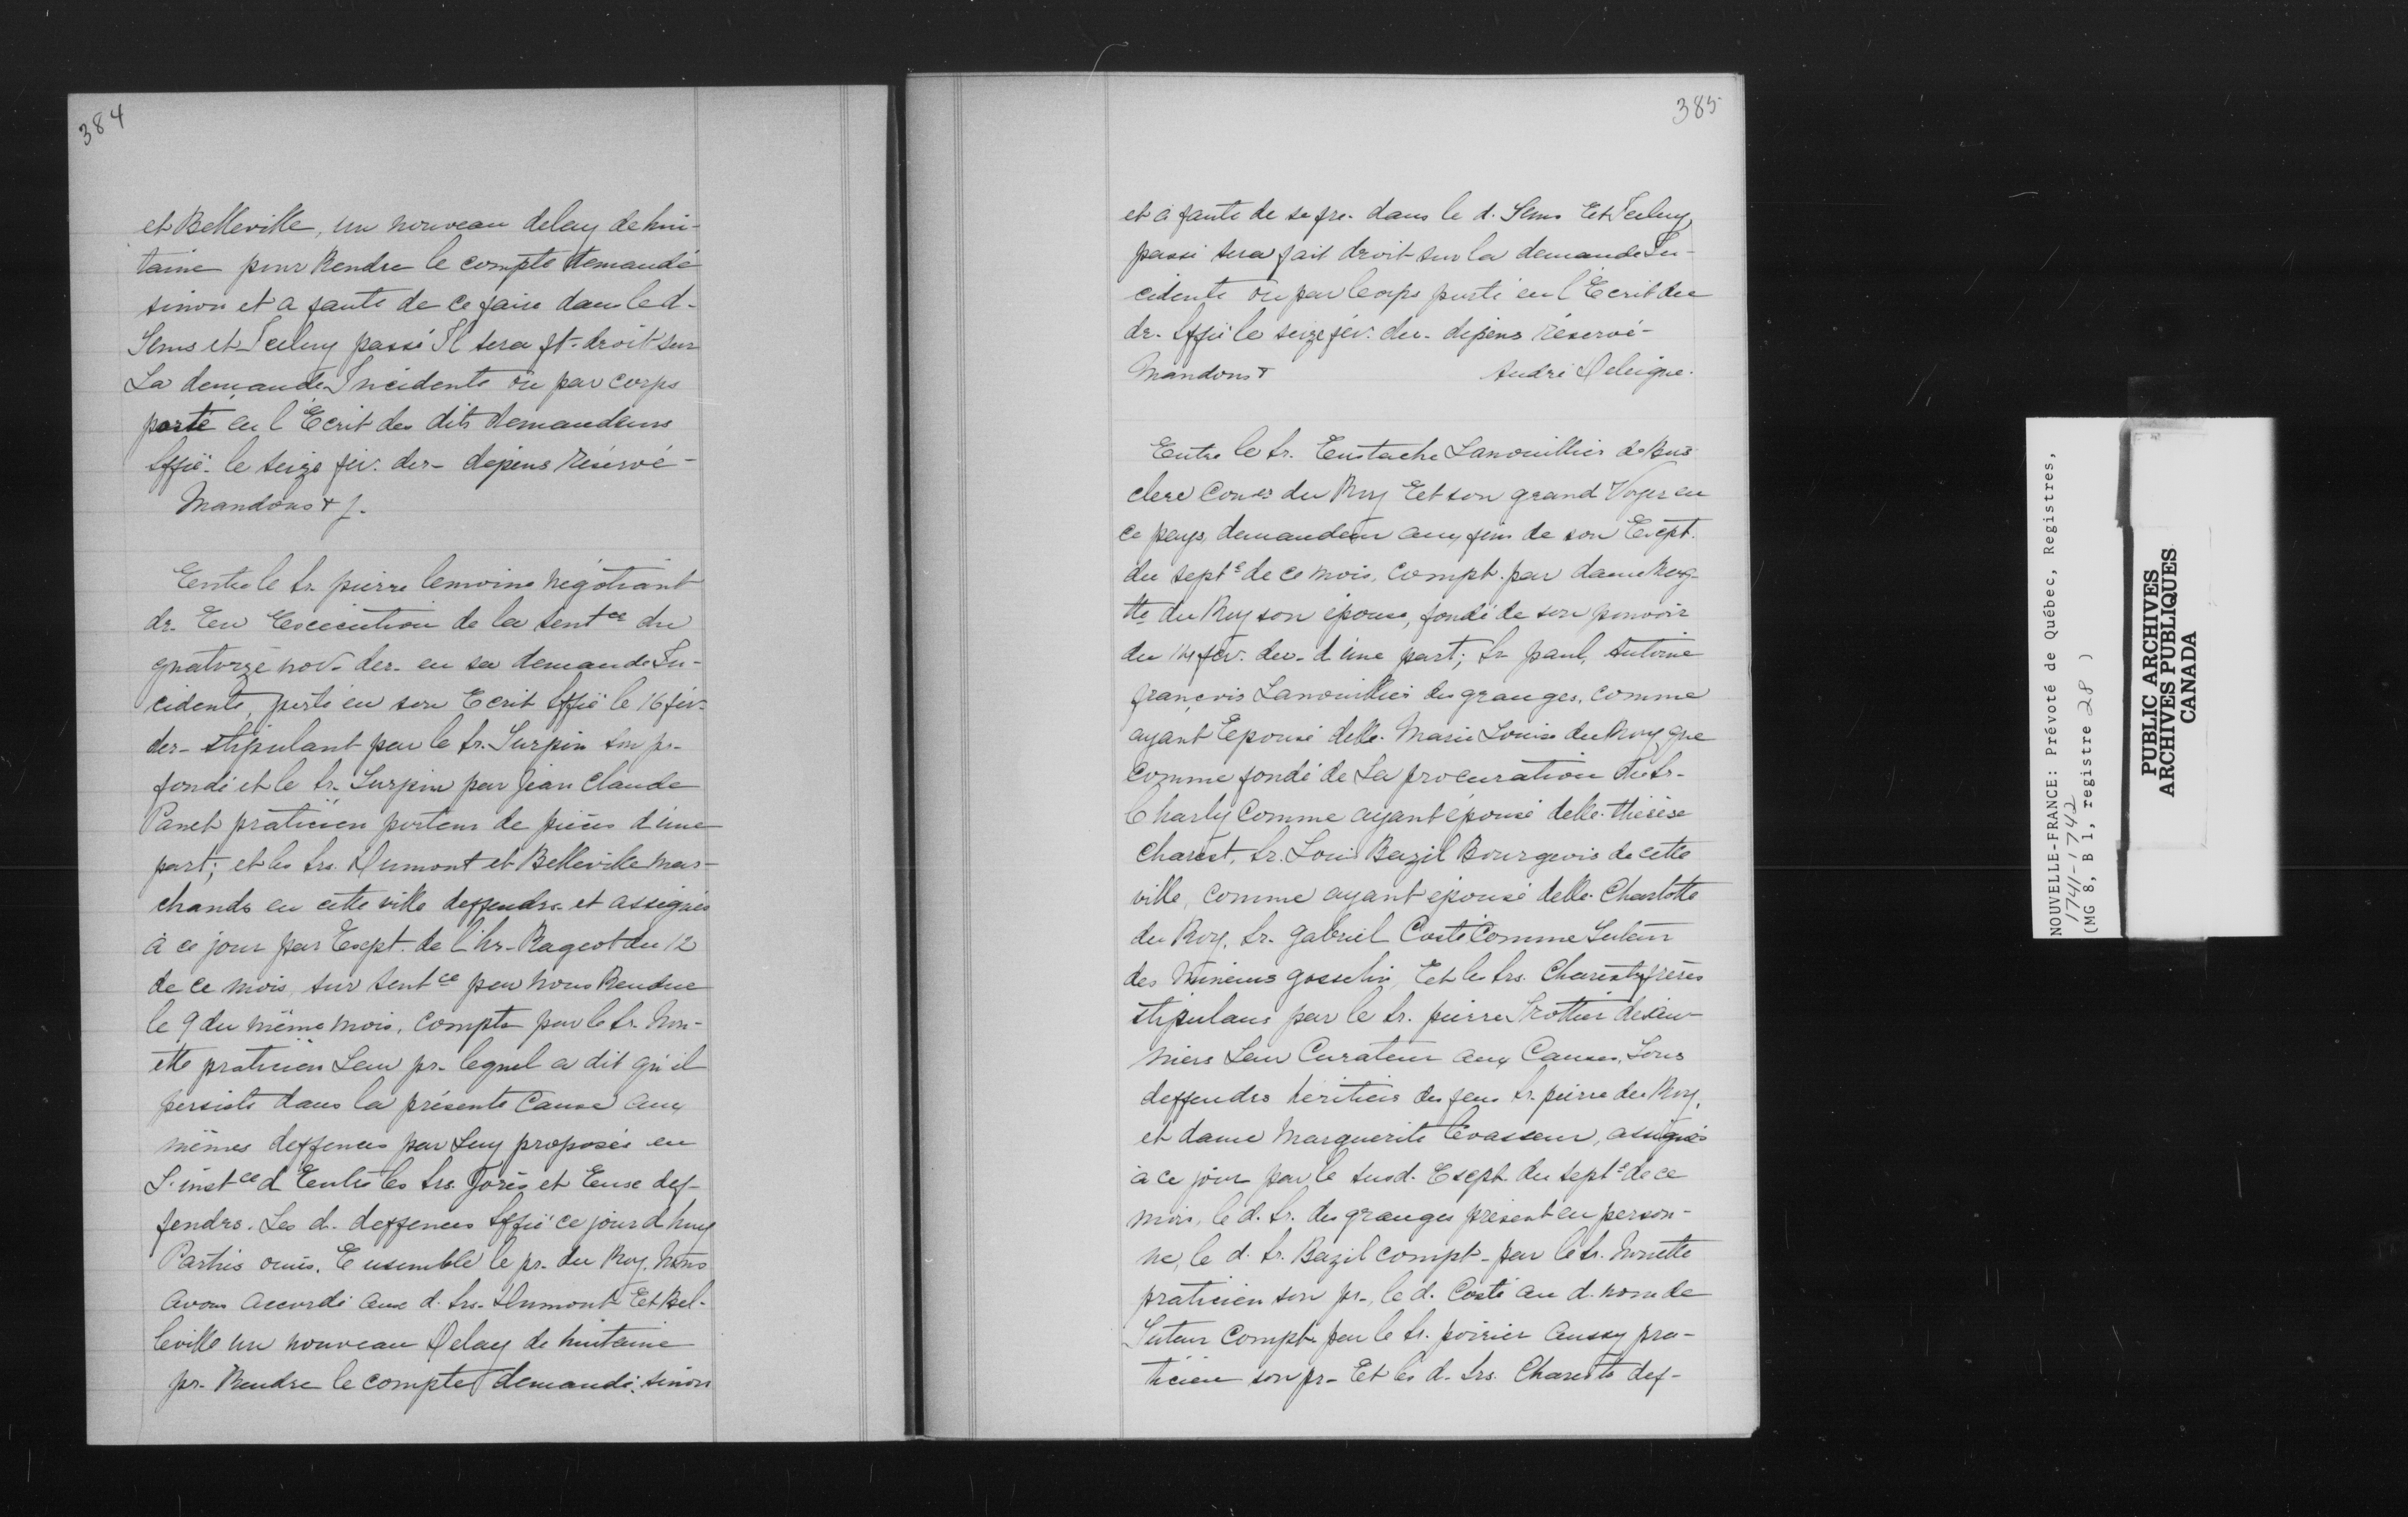 384
et Belleville, un nouveau delay de hui-
taine pour Rendre le compte demandé
sinon et a faute de ce faire dans le d.
tems et Iceluy passé Il sera ft. droit sur
La demande Incidente où par corps
porté en l'Ecrit des dits demandeurs
Sffié le seize fév. der- depens réservé-
Mandons & f.
Entre le Sr. pierre lemoine négotiant
dr. En Exécution de la sentce du
quatorze nov. der- en sa demande In-
cidente, porté en son Ecrit Sffié le 16 fév.
der- stipulant par le Sr. Turpin son pr-
fondé et le Sr. Turpin par Jean Claude
Panet praticien porteur de pièces d'une
part; et les Srs. Dumont et Belleville mar-
chands en cette ville deffendrs. et assignés
à ce jour par Exept. de l'hr. Rageot du 12
de ce mois, sur sentce par nous Rendue
le 9 du même mois, compts par le Sr. Nou-
ette praticien Leur pr- lequel a dit qu'il
persiste dans la présente Cause aux
mêmes deffences par Luy proposés en
L'instce d'Entre les Srs. et def-
fendrs. Les d. deffences Sffié ce jour d'huy
Parties ouies, Ensemble le pr. du Roy. Nous
avons accordé aux d. Srs. Dumont Et Bel-
leville un nouveau Delay de huitaine
pr. Rendre le compte demandé; sinon
385
et à faute de se fre. dans le d. tems Et Iceluy,
passé sera fait droit sur la demande In-
cidente où par corps porté en l'Ecrit du
dr. Sffié le seize fév. der- dépens réservé-
Mandons & André Deleigne.
Entre le Sr. Eustache Lanouillier de Bois-
clere Coner du Roy Et son grand Voyer en
ce pays, demandeur aux fins de son Exept.
du septe de ce mois, compt. par dame Marg-
tte du Roy son épouse, fondé de son pouvoir
du 14 fév. der- d'une part; Sr paul, Antoine
françois Lanouillier des granges, comme
ayant Epousé delle. Marie Louise du Roy, que
comme fondé de La procuration du Sr-
Charly comme ayant épousé delle. thérèse
Charest, Sr. Louis Bazil Bourgeois de cette
ville, comme ayant épousé delle. Charlotte
du Roy, Sr. Gabriel Costé Comme Tuteur
des Mineurs gosselin, Et les Srs. Charests frères
stipulans par le Sr. pierre Trottier désau-
niers Leur Curateur aux Causes, Tous
deffendrs héritiers du feu Sr. pierre du Roy,
et dame Marguerite Levasseur, assignés
à ce jour par le susd. Exept. du septe de ce
mois, le d. Sr. des granges présent en person-
ne, le d. Sr. Bazil compt- par le Sr. Nouette
praticien son pr-, le d. Costé au d. nom de
Tuteur compts par le Sr. poirier aussy pra-
ticien son pr- Et les d. Srs. Charests def-
NOUVELLE-FRANCE: Prévoté de Québec, Registres,
1741-1742
(MG 8, B 1, registre 28 )
PUBLIC ARCHIVES
ARCHIVES PUBLIQUES
CANADA